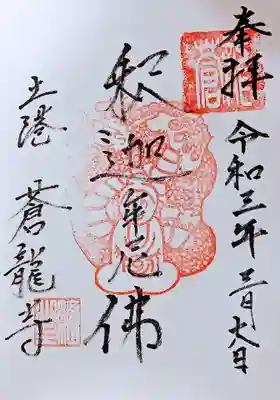 奉拝
令和三年二月十八日
釈迦牟尼佛
土隆
蒼龍寺